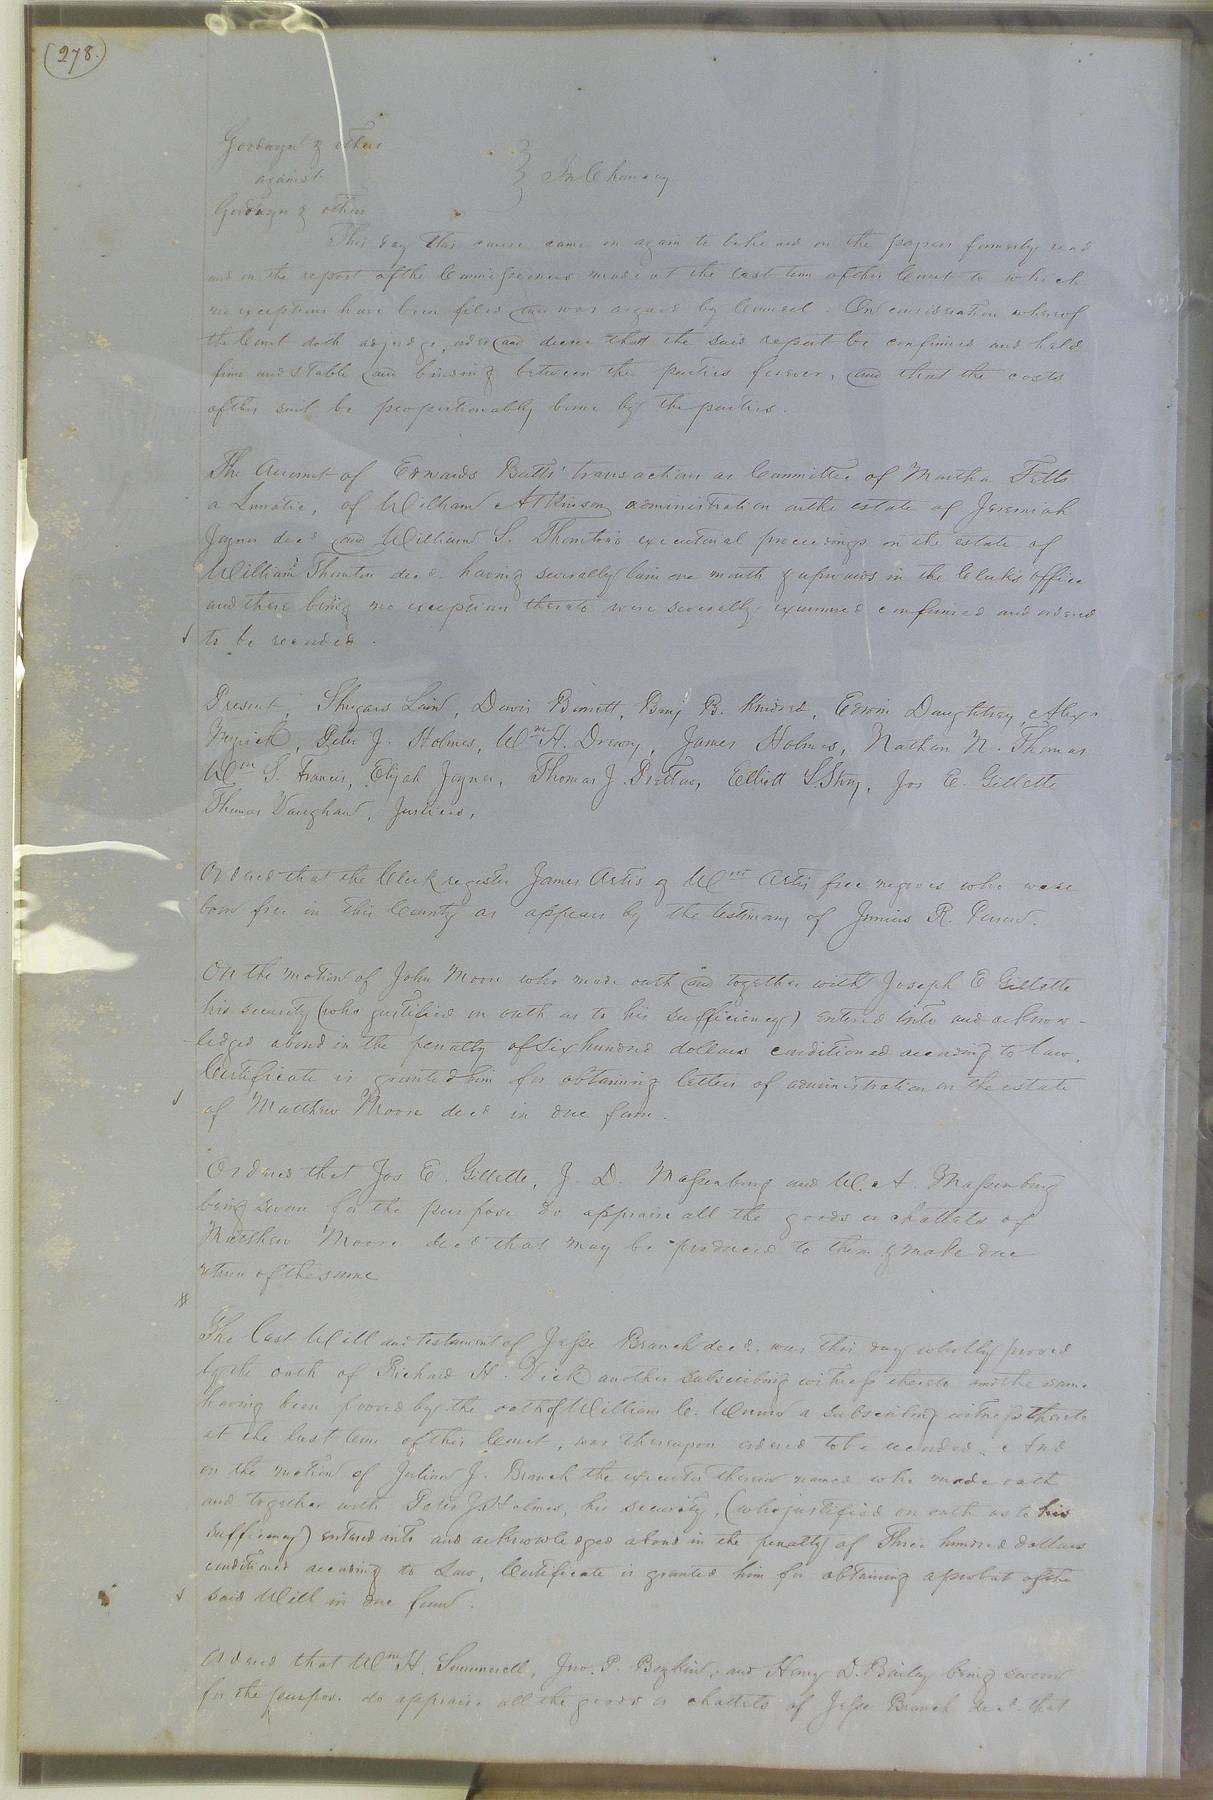 (278.)
Goodwyn & others
against } In Chancery
Goodwyn & others
This day this cause came on again to be heard on the papers formerly read
and on the report of the Commissioners made at the last term of this Court to which
no exceptions have been filed and was argued by Counsel. On consideration whereof
the Court doth adjudge, order and decree that the said report be confirmed and held
firm and stable and binding between the parties forever, and that the costs
of this suit be proportionably borne by the parties.
The Account of Edwards Butts' transactions as Committee of Martha Fitts
a Lunatic, of William Atkinson administration on the estate of Jeremiah
Joyner decd and William S. Thornton's executorial proceedings on the estate of
William Thornton decd. having severally lain one month & upwards in the Clerk's office
and there being no exception thereto were severally examined confirmed and ordered
to be recorded.
Present, Shugars Lain, Davis Barrett, Benj B. Kindred, Edwin Daughtrey, Alex
Myrick, Peter J. Holmes, Wm H. Drewry, James Holmes, Nathan N. Thomas
Wm S. Francis, Elijah Joyner, Thomas J. Pretlow, Elliott L. Story, Jos E. Gillette
Thomas Vaughan, Justices,
Ordered that the Clerk register James Artis & Wm Artis free negroes who were
born free in this County as appears by the testimony of Junius R.
On the motion of John Moore who made oath and together with Joseph E Gillette
his security (who justified on oath as to his sufficiency) entered into and acknow-
ledged a bond in the penalty of Six hundred dollars conditioned according to law.
Certificate is granted him for obtaining letters of administration on the estate
of Matthew Moore decd in due form.
Ordered that Jos E. Gillette, J. D. Massenburg and W. A. Massenburg
being sworn for the purpose do appraise all the goods or chattels of
Matthew Moore decd that may be produced to them & make due
return of the same
The last Will and testament of Jesse Branch decd. was this day wholly proved
by the oath of Richard H. Dick another subscribing witness thereto and the same
having been proved by the oath of William C. a subscribing witness thereto
at the last term of this Court, was thereupon ordered to be recorded. And
on the motion of Julian J. Branch the executor therein named who made oath
and together with Peter J. Holmes, his security, (who justified on oath as to his
sufficiency) entered into and acknowledged a bond in the penalty of Three hundred dollars
conditioned according to Law, Certificate is granted him for obtaining a probat of the
said Will in due form.
Ordered that Wm H. Summerell, Jno. P. Boykin, and Henry D. Bailey being sworn
for the purpose do appraise all the goods or chattels of Jesse Branch decd. that